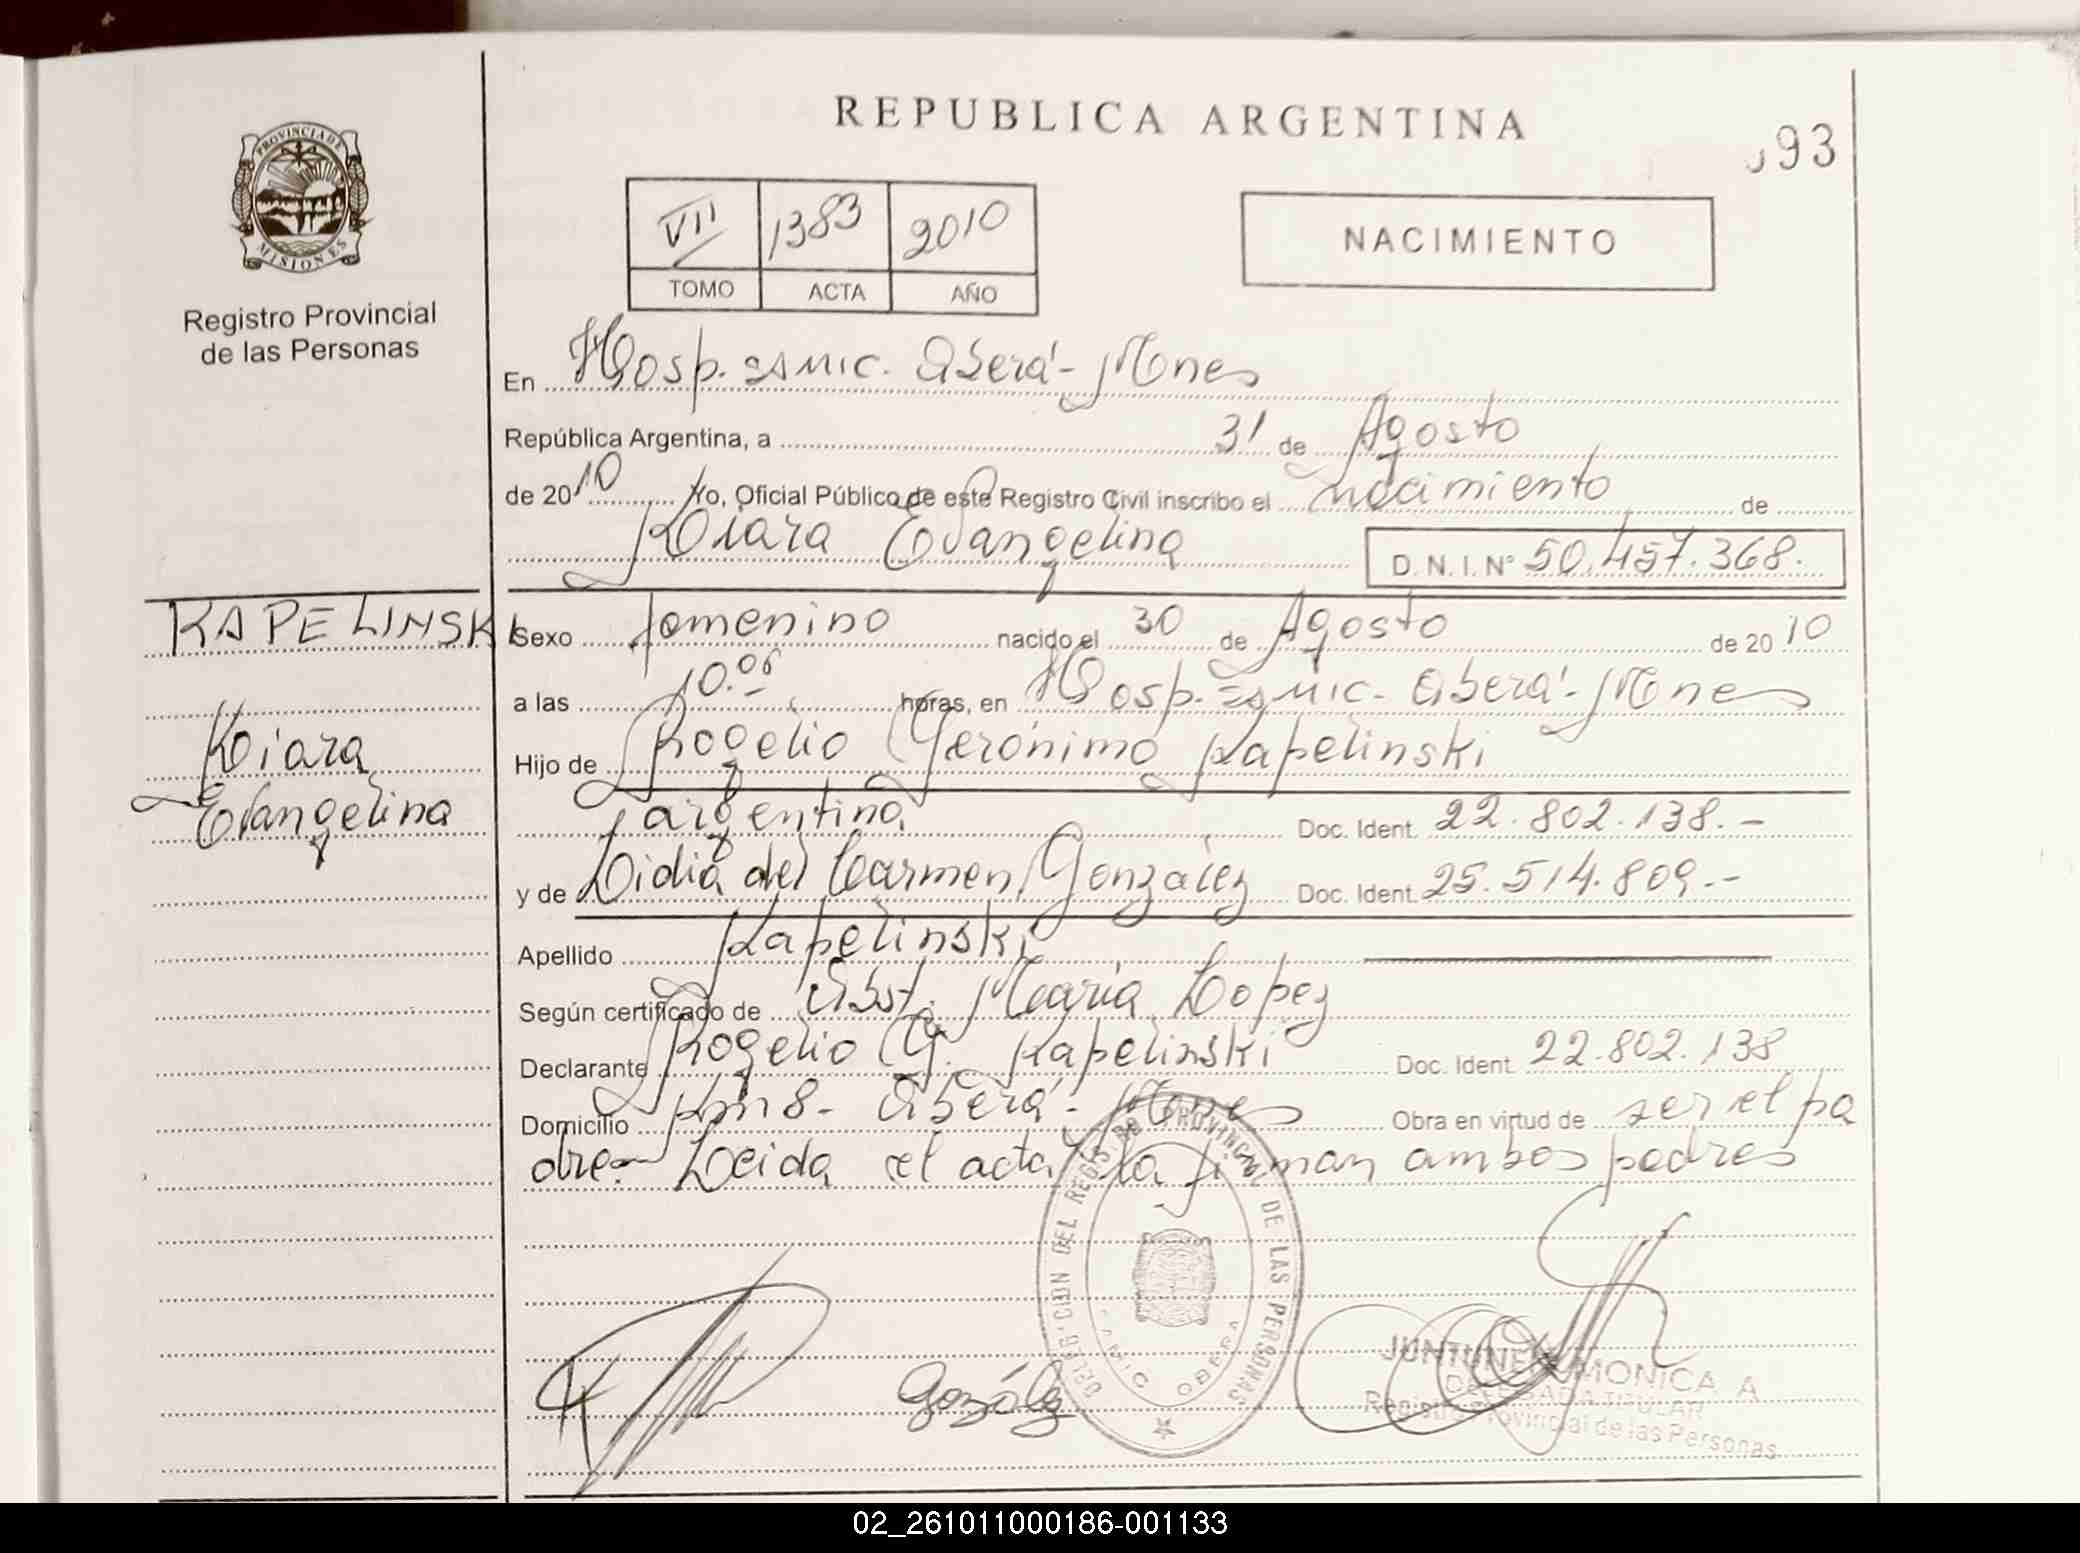 REPUBLICA ARGENTINA
93
PROVINCIA DE
MISIONES
Registro Provincial
de las Personas
VII 1383 2010
TOMO ACTA AÑO
NACIMIENTO
En Hosp. SAMIC. Oberá - Mnes
República Argentina, a 31 de Agosto
de 2010 Yo, Oficial Público de este Registro Civil inscribo el nacimiento de
Kiara Evangelina D.N.I. N° 50.457.368.
KAPELINSKI
Kiara
Evangelina
Sexo femenino nacido el 30 de Agosto de 2010
a las 10.06 horas, en Hosp. SAMIC - Oberá - Mnes
Hijo de Rogelio Gerónimo Kapelinski
argentina Doc. Ident. 22.802.138.-
y de Lidia del Carmen González Doc. Ident. 25.514.809.-
Apellido Kapelinski
Según certificado de Obst. María Lopez
Declarante Rogelio G. Kapelinski Doc. Ident. 22.802.138
Domicilio Km 8 - Oberá - Mnes Obra en virtud de ser el pa
dre. Leida el acta la firman ambos padres
DELEGACION DEL REGISTRO PROVINCIAL DE LAS PERSONAS
SAMIC OBERA
Gozález
MONICA A.
DELEGADA TITULAR
Registro Provincial de las Personas
02_261011000186-001133